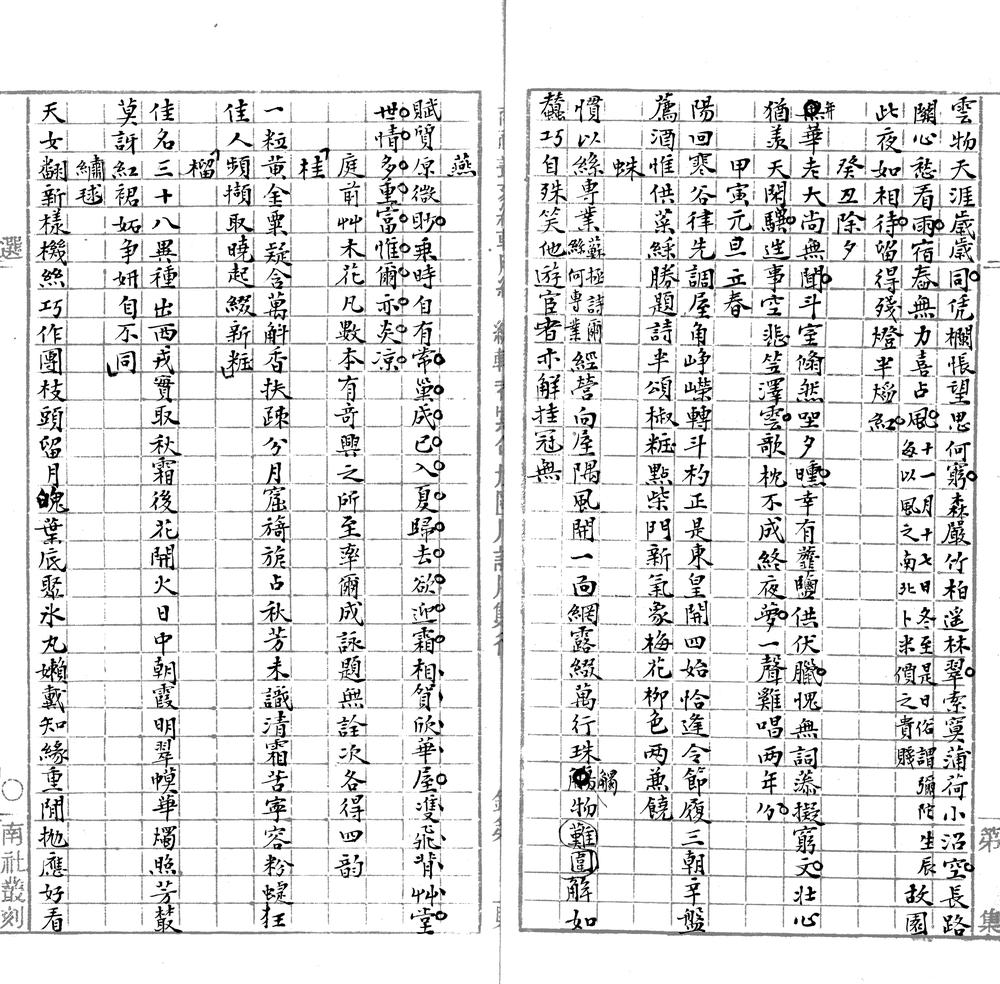 雲物天涯歲歲同凭欄悵望思何窮森嚴竹柏遥林翠索寞蒲荷小沼空長路
關心愁看雨宿舂無力喜占風十一月十七日冬至是日俗謂彌陀生辰每以風之南北卜米價之貴賤故園
此夜如相待留得殘燈半燄紅
癸丑除夕
無華老大尚無聞斗室翛然坐夕曛幸有虀鹽供伏臘愧無詞藻擬窮文壯心
猶羨天閑驥遊事空悲笠澤雲歌枕不成終夜夢一聲雞唱兩年分
甲寅元旦立春
陽回寒谷律先調屋角崢嶸轉斗杓正是東皇開四始恰逢令節履三朝辛盤
薦酒惟供菜綵勝題詩半頌椒粧點柴門新氣象梅花柳色兩兼饒
蛛
慣以絲專業蘇拯詩爾絲何專業經營向屋隅風開一面網露綴萬行珠觸物難圓解如
蠶巧自殊笑他游宦者亦解挂冠無
燕
賦質原微眇乘時自有常巢成已入夏歸去欲迎霜相賀欣華屋雙飛背艸堂
世情多重富惟爾亦炎凉
庭前艸木花凡數本有奇興之所至率爾成詠題無詮次各得四韵
桂
一粒黄金粟疑含萬斛香扶疎分月窟旖旎占秋芳未識清霜苦寧容粉蜨狂
佳人頻擷取曉起綴新粧
榴
佳名三十八異種出西戎實取秋霜後花開火日中朝霞明翠幙華燭照芳叢
莫訝紅裙妬爭妍自不同
繡毬
天女翻新樣機絲巧作團枝頭留月魄葉底聚氷丸嬾戴知緣重閒抛應好看
選
南社叢刻
第
集